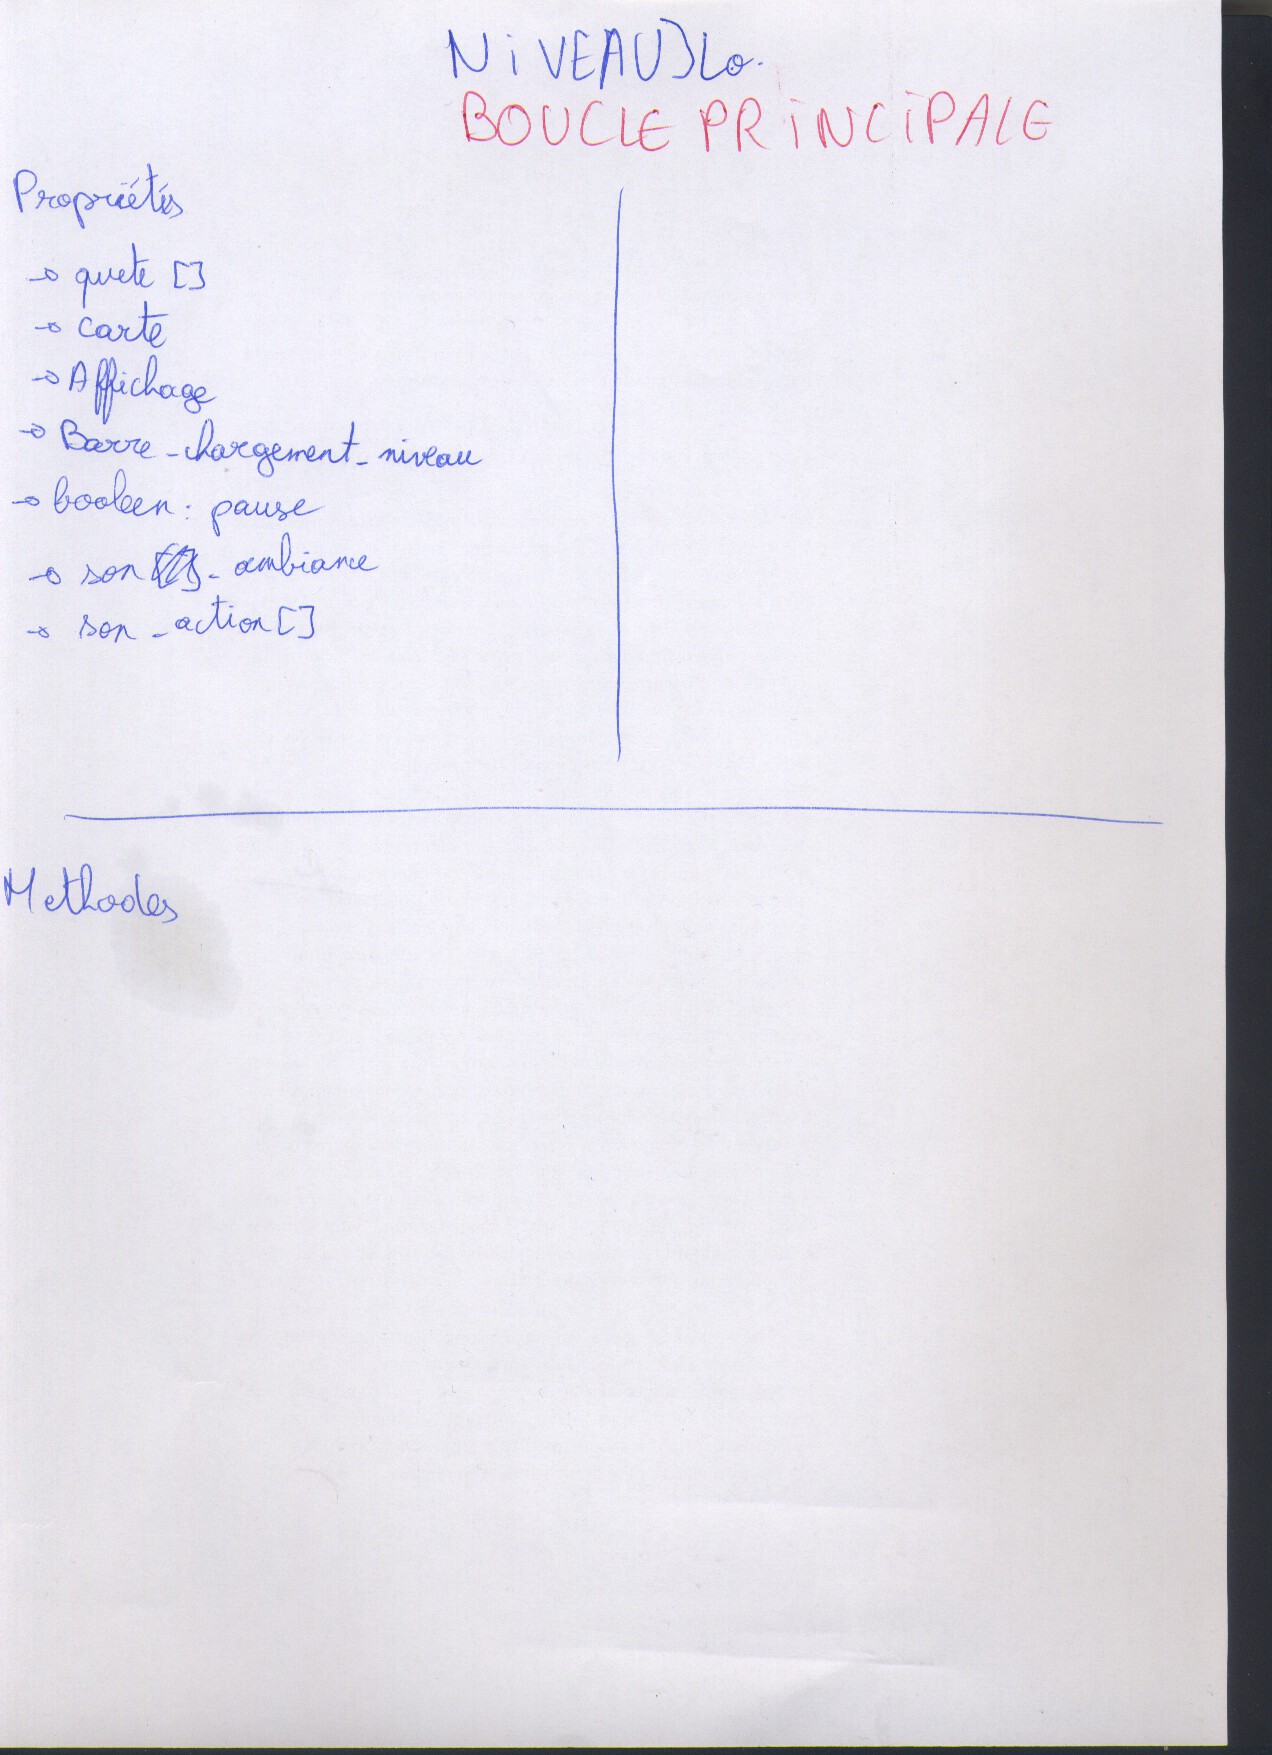 NiVEAU
BOUCLE PRiNCiPALE
Propriétés
→ quete []
→ carte
→ Affichage
→ Barre_chargement_niveau
→ booleen : pause
→ son_ambiance
→ son_action[]
Methodes